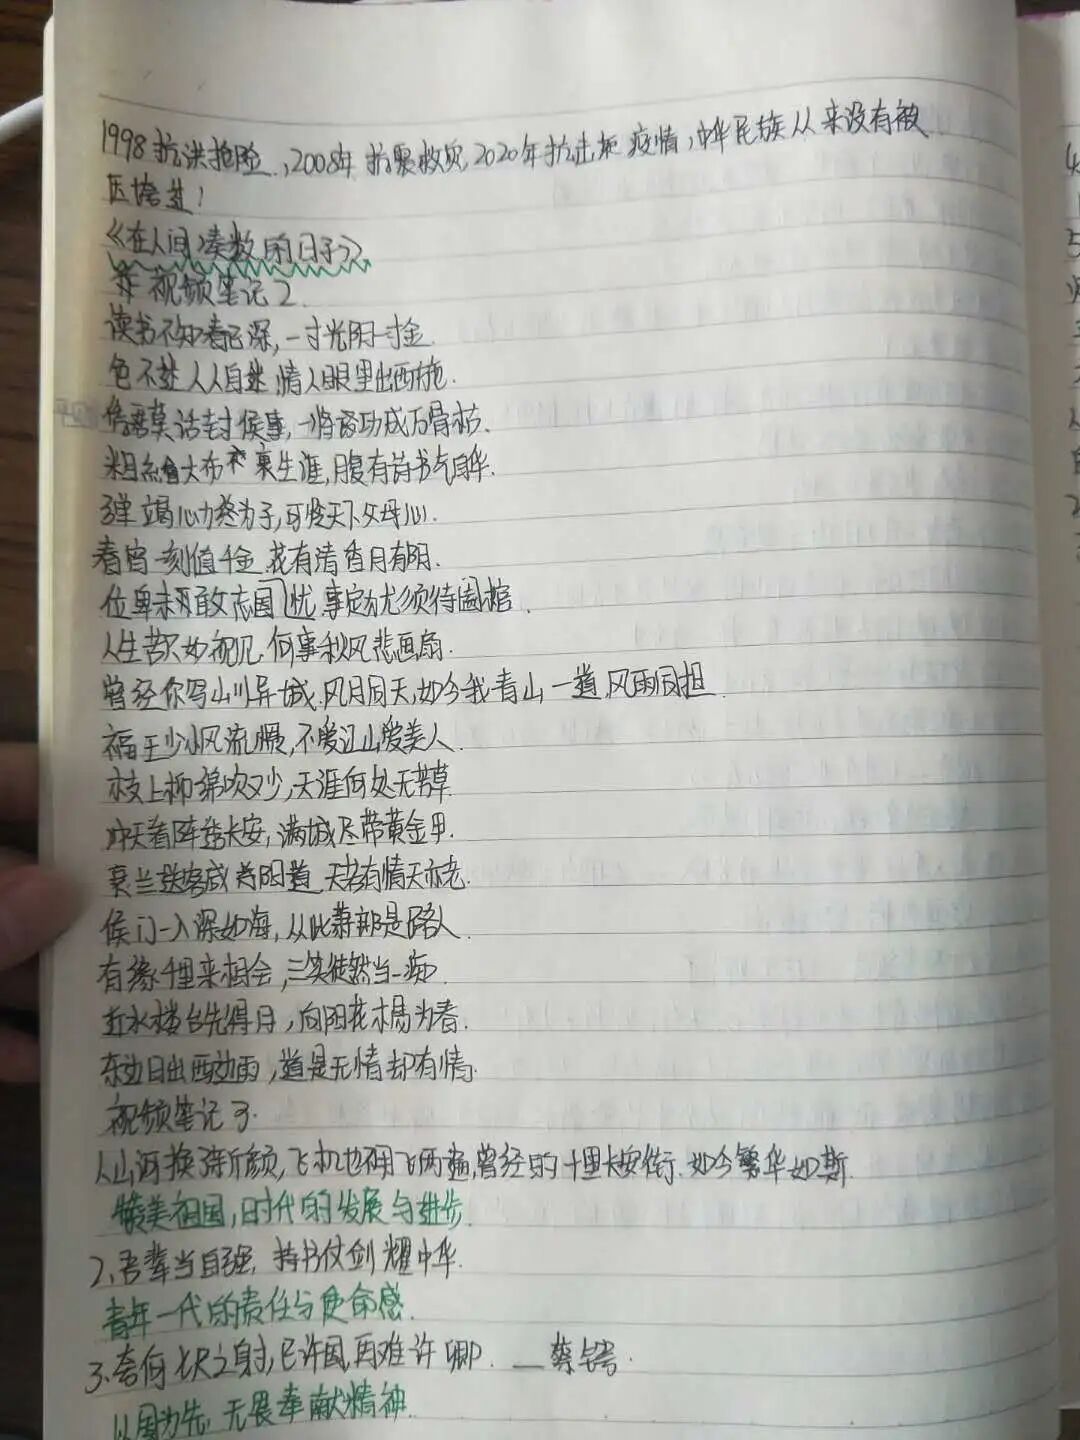 1998抗洪抢险,,2008年抗震救灾,2020年抗击疫情,中华民族从来没有被
压垮过!
《在人间凑数的日子》
视频笔记2.
读书不知春已深,一寸光阴一寸金.
色不迷人人自迷,情人眼里出西施.
凭君莫话封侯事,一将功成万骨枯.
粗缯大布裹生涯,腹有诗书气自华.
殚竭心力终为子,可怜天下父母心.
春宵一刻值千金,花有清香月有阴.
位卑未敢忘国忧,事定犹须待阖棺.
人生若只如初见,何事秋风悲画扇.
曾经你写山川异域,风月同天,如今我青山一道,风雨同担.
福王少小风流惯,不爱江山爱美人.
枝上柳绵吹又少,天涯何处无芳草.
冲天香阵透长安,满城尽带黄金甲.
衰兰送客咸阳道,天若有情天亦老.
侯门一入深如海,从此萧郎是路人.
有缘千里来相会,三笑徒然当一痴.
近水楼台先得月,向阳花木易为春.
东边日出西边雨,道是无情却有情.
视频笔记3.
1.山河换新颜,飞机也不用飞两遍,曾经的十里长安街,如今繁华如斯.
赞美祖国,时代的发展与进步.
2.吾辈当自强,持书仗剑耀中华.
青年一代的责任与使命感.
3.奈何七尺之身,已许国,再难许卿.——蔡锷.
以国为先,无畏奉献精神.